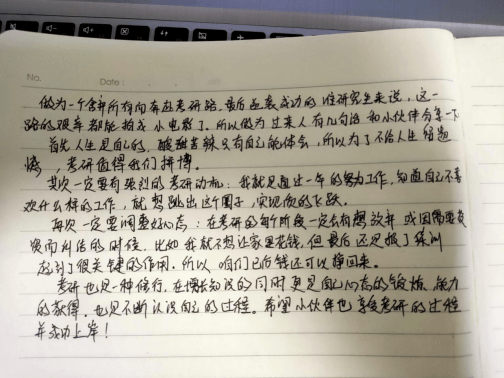 No.
Date:
做为一个舍弃所有向奔赴考研路、最后逆袭成功的准研究生来说，这一
路的艰辛都能拍成小电影了。所以做为过来人有几句话和小伙伴分享一下
首先人生是自己的，酸甜苦辣只有自己能体会，所以为了不给人生留遗
憾，考研值得我们拼搏。
其次一定要有强烈的考研动机：我就是通过一年的努力工作，知道自己不喜
欢什么样的工作，就想跳出这个圈子，实现质的飞跃。
再次一定要调整好心态：在考研的每个阶段一定会有想放弃或因需要花
费而纠结的时候，比如我就不想让家里花钱，但最后还是报了集训
起到了很关键的作用，所以咱们已后钱还可以挣回来。
考研也是一种修行，在增长知识的同时更是自己心态的锻炼、能力
的获得，也是不断认识自己的过程。希望小伙伴也享受考研的过程
并成功上岸！